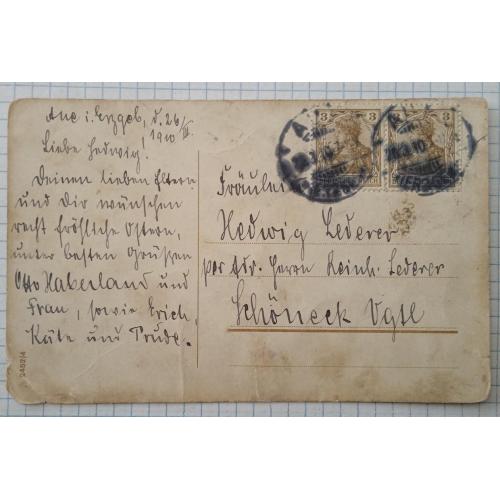 Aue i. Erzgeb, d. 26/III
1910
Liebe Hedwig!
Deinen lieben Eltern
und Dir wünschen
recht fröhliche Ostern,
unter besten Grüßen
Otto Haberland und
Frau, sowie Erich,
Käte und Trude.
Fräulein
Hedwig Lederer
per Adr. Herrn Reinh. Lederer
Schöneck Vgtl
3
3
2452/4